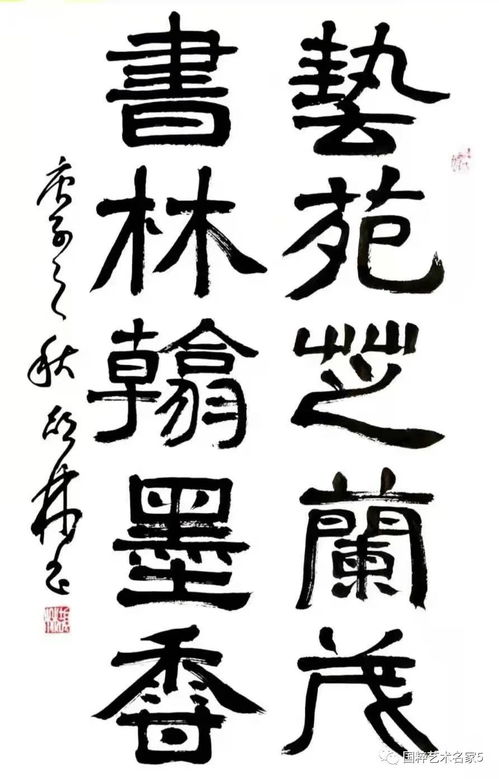 藝苑芝蘭茂
書林翰墨香
庚子之秋
国粹艺术名家5